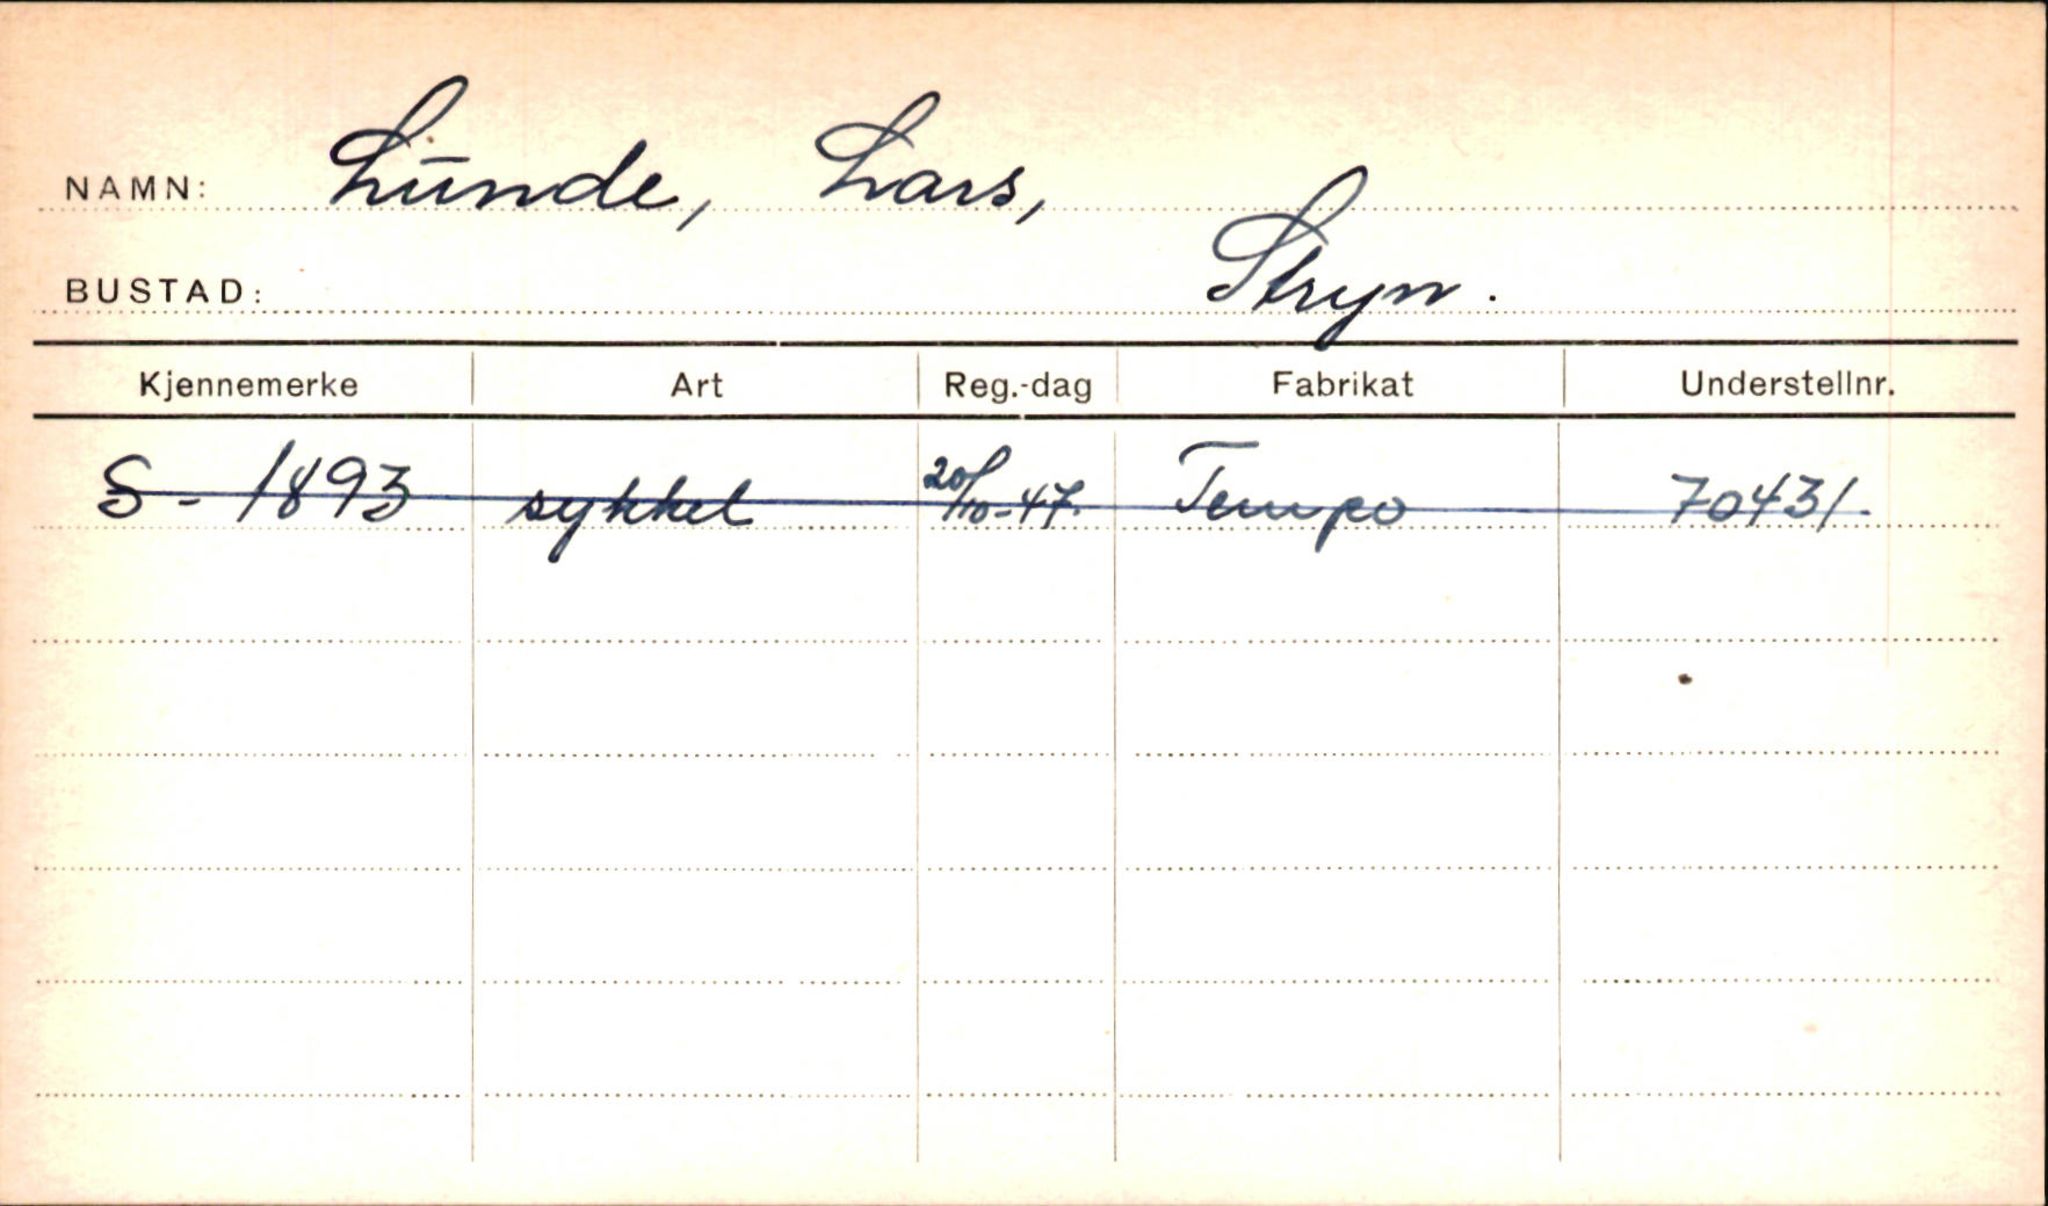 NAMN: Lunde, Lars,
BUSTAD: Stryn.
Kjennemerke Art Reg.-dag Fabrikat Understellnr.
S - 1893 sykkel 20/10-47. Tempo 70431.